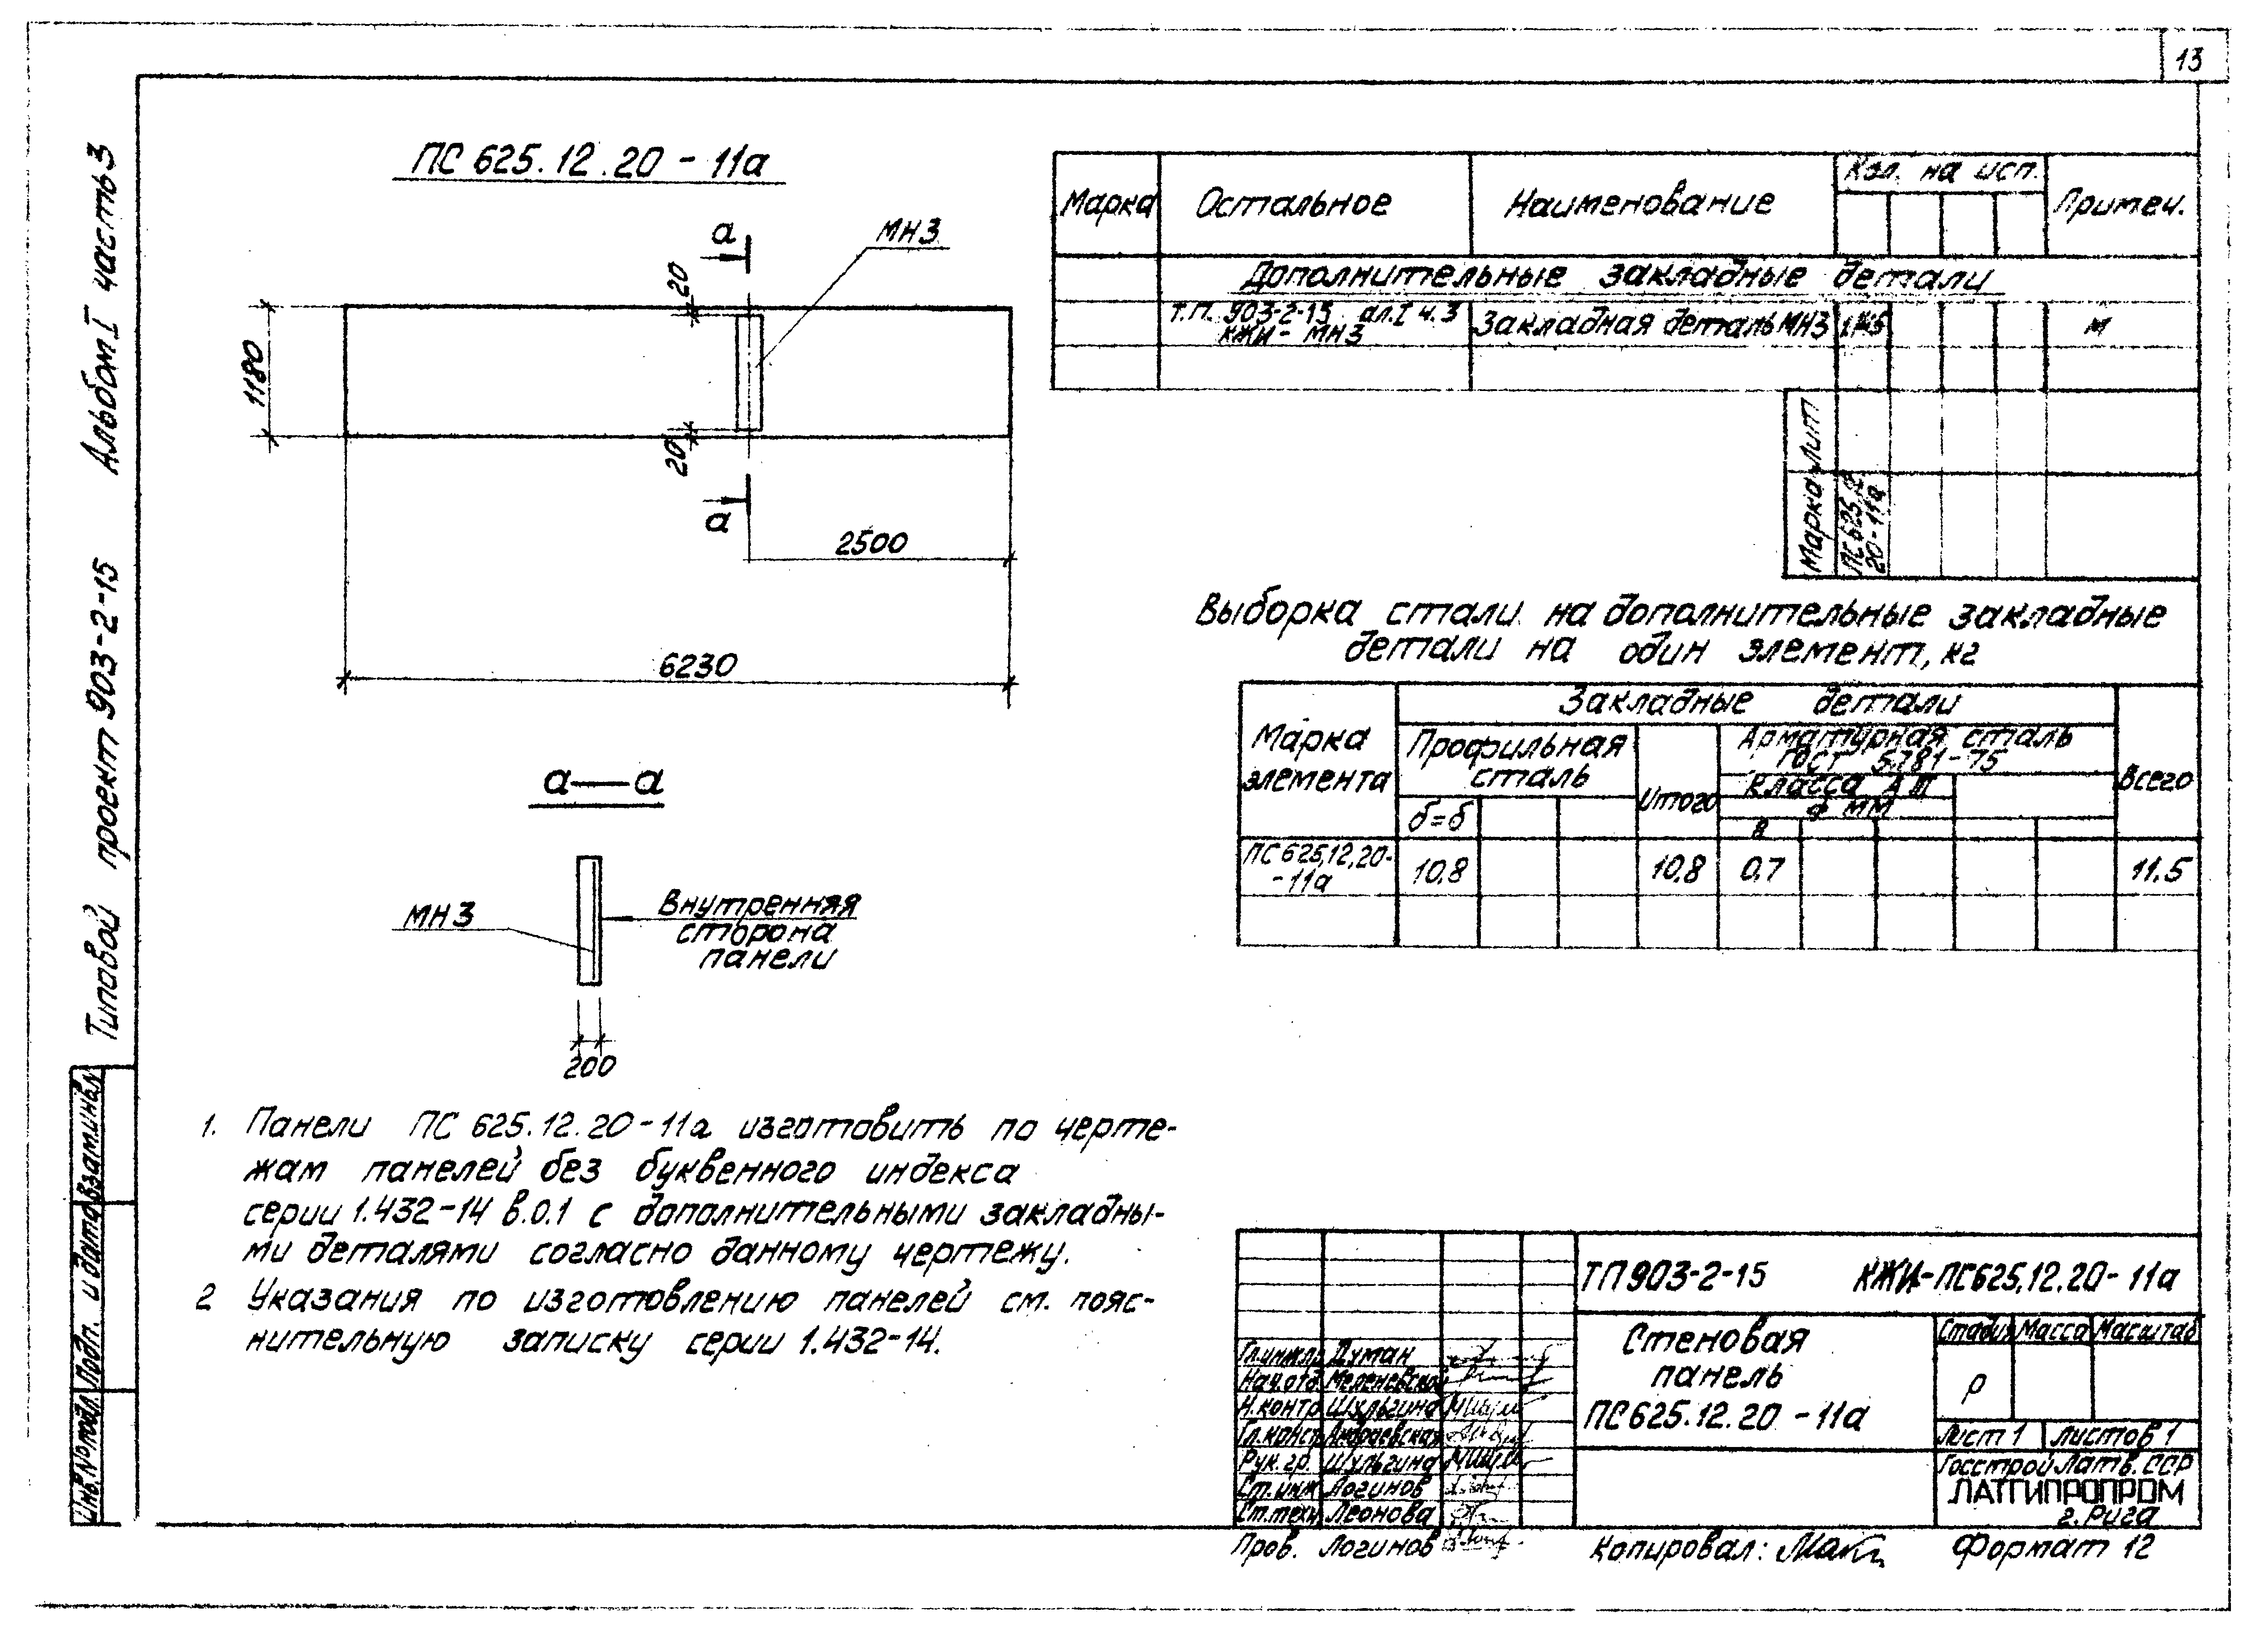 13
Альбом I часть 3
Типовой проект 903-2-15
Взам.инв.№
Подп. и дата
Инв.№ подл.
ПС 625.12.20-11а
а
МН3
20
1180
20
а
2500
6230
а—а
МН3
Внутренняя
сторона
панели
200
1. Панели ПС 625.12.20-11а изготовить по черте-
жам панелей без буквенного индекса
серии 1.432-14 в.0.1 с дополнительными закладны-
ми деталями согласно данному чертежу.
2 Указания по изготовлению панелей см. пояс-
нительную записку серии 1.432-14.
Марка Остальное Наименование Кол. на исп. Примеч.
Дополнительные закладные детали
Т.П. 903-2-15 ал.I ч.3 Закладная деталь МН3 м
КЖИ-МН3
Марка Лит
ПС625.12
20-11а
Выборка стали на дополнительные закладные
детали на один элемент, кг
Марка элемента
Закладные детали
Профильная сталь
б=б
Итого
Арматурная сталь
ГОСТ 5781-75
Класса А III
Ф мм
8
Всего
ПС 625,12,20- 10,8 10,8 0,7 11.5
-11а
ТП 903-2-15 КЖИ-ПС625.12.20-11а
Стеновая
панель
ПС625.12.20-11а
Стадия Масса Масштаб
Р
Лист 1 Листов 1
Госстрой Латв.ССР
ЛАТГИПРОПРОМ
г.Рига
Гл.инж.пр Думан
Нач.отд
Н.контр Шульгина
Гл.конст
Рук.гр. Шульгина
Ст.инж Логинов
Ст.техн Леонова
Пров. Логинов
Копировал: Формат 12